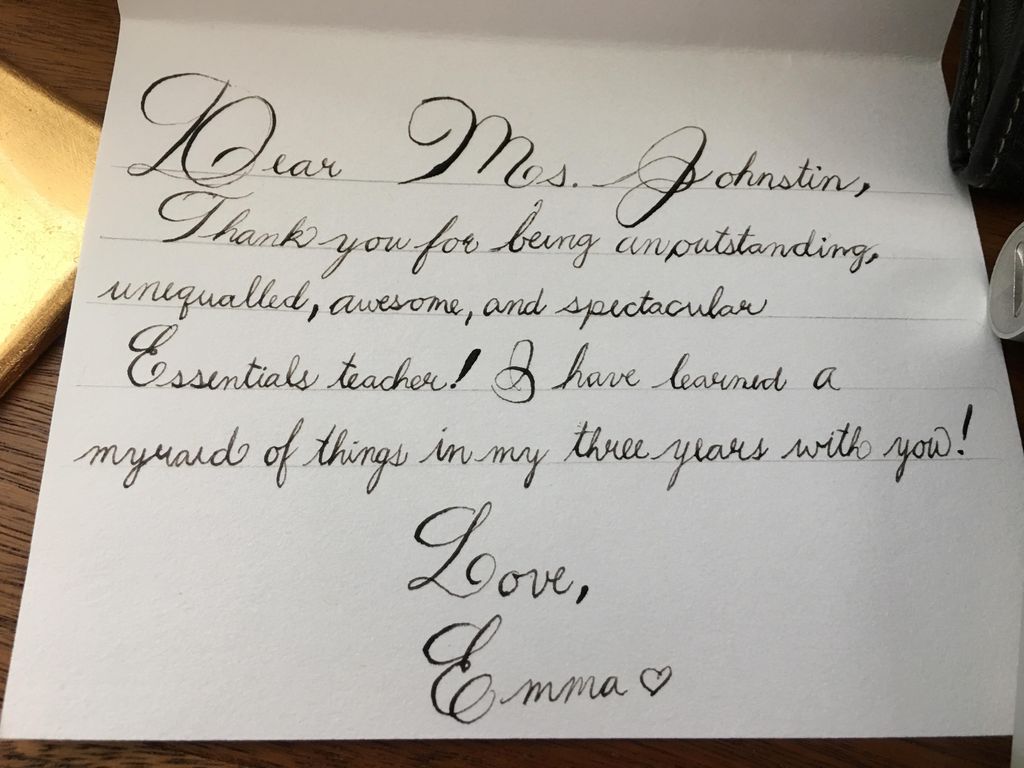 Dear Ms. Johnstin,
Thank you for being an outstanding,
unequalled, awesome, and spectacular
Essentials teacher! I have learned a
myraid of things in my three years with you!
Love,
Emma ♡